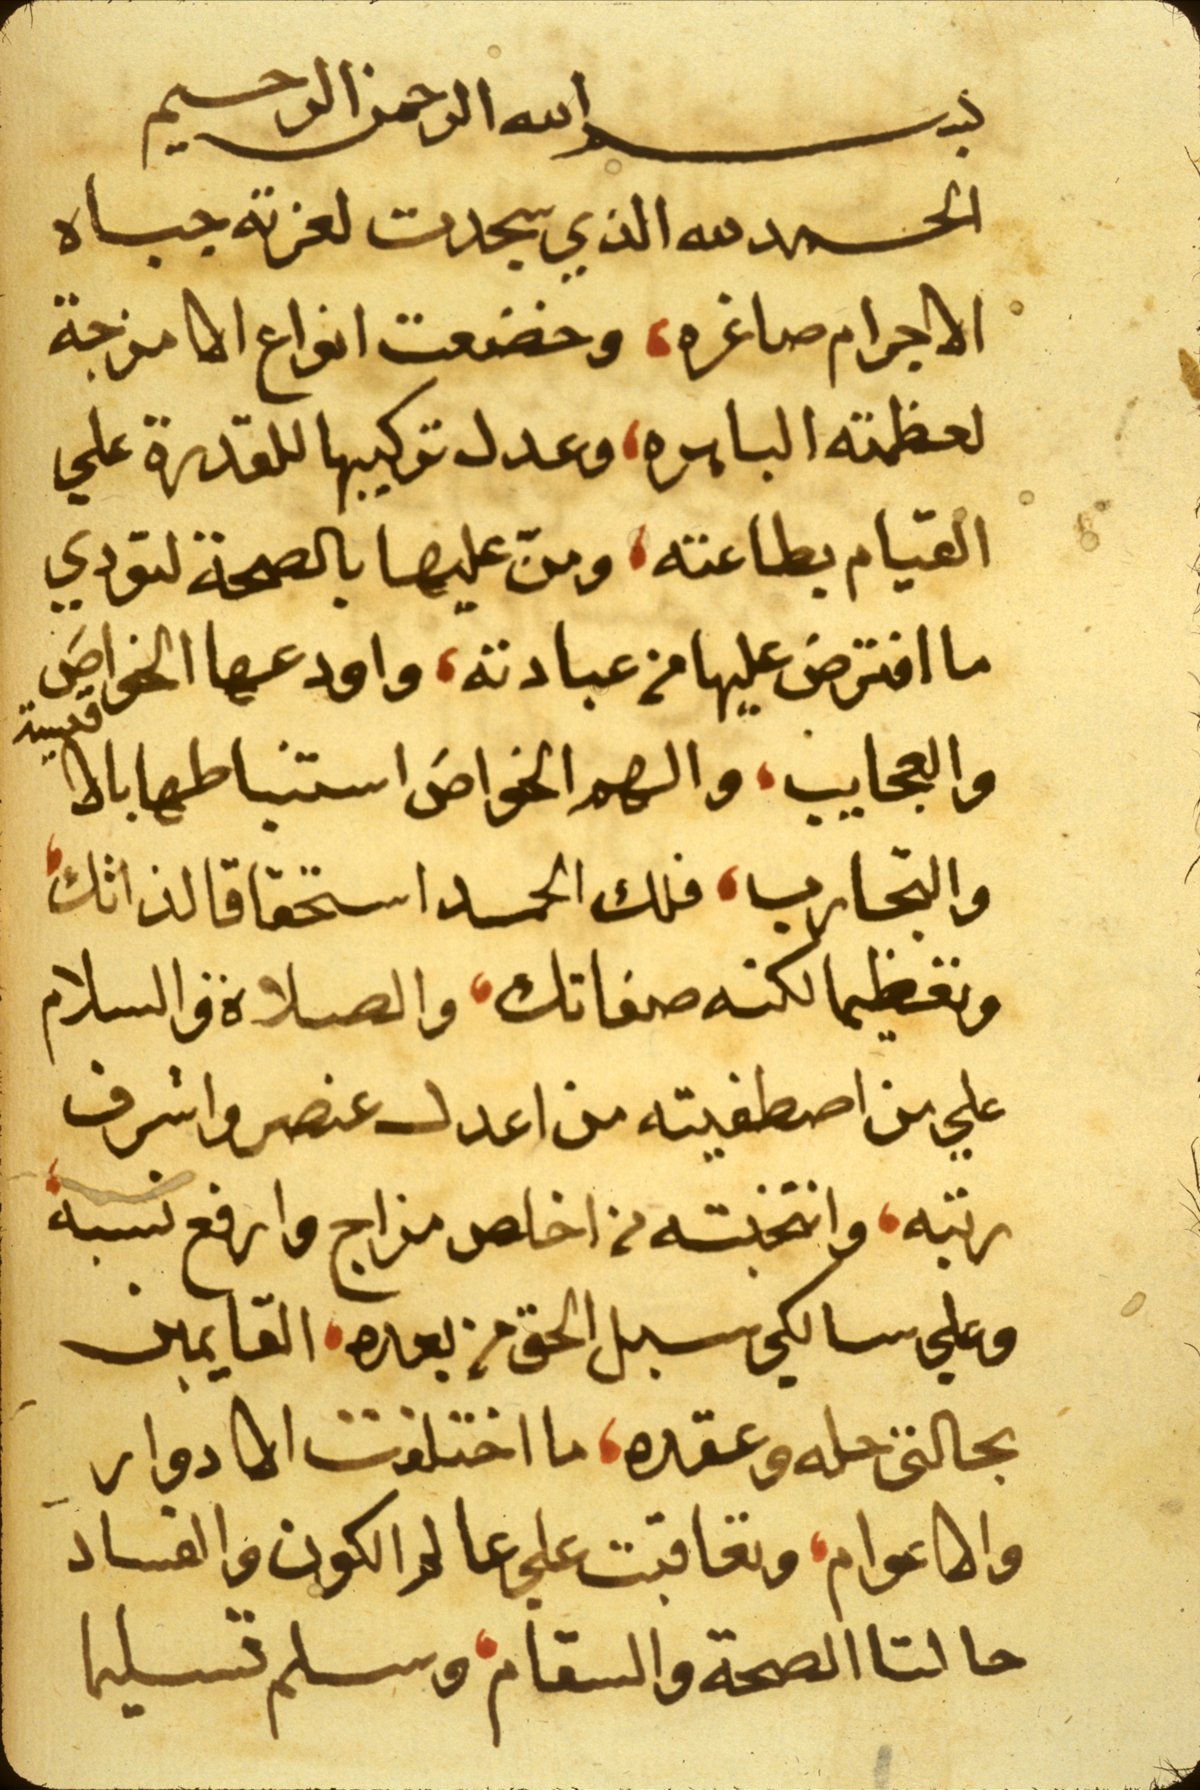 بسم الله الرحمن الرحيم
الحمد لله الذي سجدت لعزته جباه
الاجرام صاغره، وخضعت انواع الامزجة
لعظمته الباهره، وعدل تركيبها للقدرة علي
القيام بطاعته، ومنّ عليها بالصحة لتودي
ما افترض عليها من عبادته، واودعها الخواص
والعجايب، والهم الخواص استنباطها بالاقيسة
والتجارب، فلك الحمد استحقاقا لذاتك،
وتعظيما لكنه صفاتك، والصلاة والسلام
علي من اصطفيته من اعدل عنصر واشرف
رتبه، وانتخبته من اخلص مزاج وارفع نسبه،
وعلي سالكي سبيل الحق من بعده، القايمين
بحالتي حله وعقده، ما اختلفت الادوار
والاعوام، وتعاقبت علي عالم الكون والفساد
حالتا الصحة والسقام، وسلم تسليما